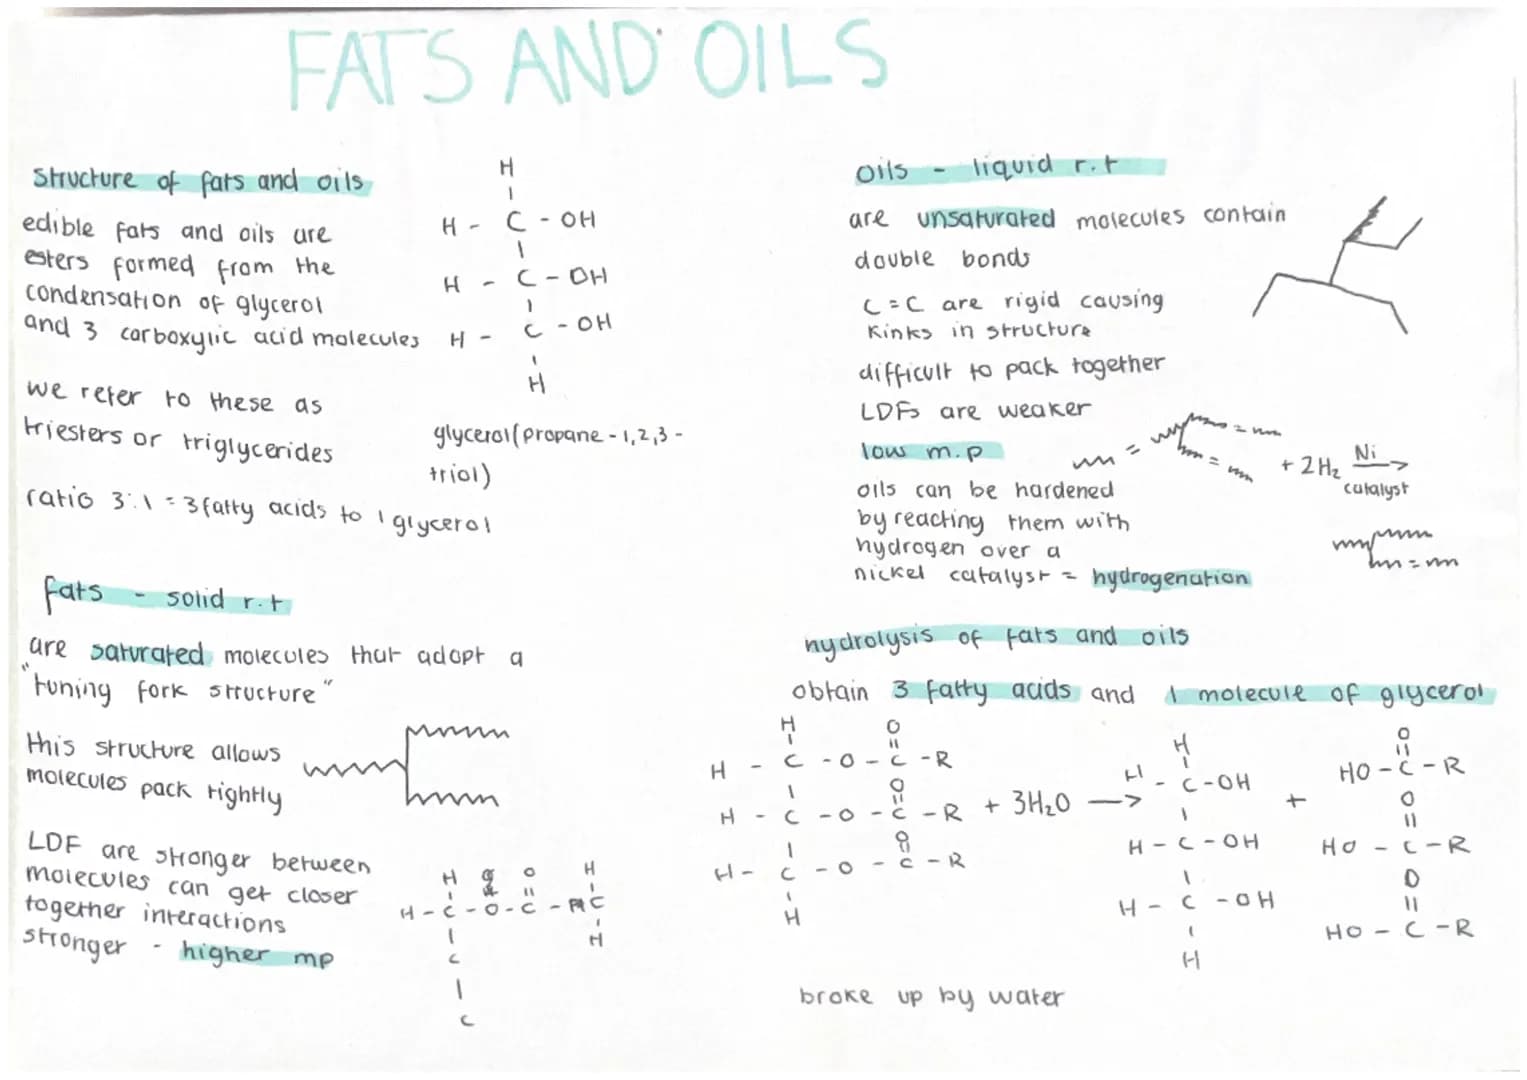 FATS AND OILS
structure of fats and oils
edible fats and oils are
esters formed from the
condensation of glycerol
and 3 carboxylic acid molecules
we refer to these as
triesters or triglycerides
ratio 3:1 = 3 fatty acids to 1 glycerol
H
H - C - OH
H - C - OH
H - C - OH
H
glycerol (propane - 1,2,3 -
triol)
fats - solid r.t
are saturated molecules that adopt a
"tuning fork structure"
this structure allows
molecules pack tightly
LDF are stronger between
molecules can get closer
together interactions
stronger - higher mp
H O H
H - C - O - C - C
C H
C
oils - liquid r.t
are unsaturated molecules contain
double bonds
C = C are rigid causing
kinks in structure
difficult to pack together
LDFs are weaker
low m.p
oils can be hardened
by reacting them with
hydrogen over a
nickel catalyst = hydrogenation
+ 2H₂ Ni →
catalyst
hydrolysis of fats and oils
obtain 3 fatty acids and 1 molecule of glycerol
H O
H - C - O - C - R
O
H - C - O - C - R
O
H - C - O - C - R
H
+ 3H₂O →
H
H - C - OH
H - C - OH
H - C - OH
H
+
O
HO - C - R
O
HO - C - R
O
HO - C - R
broke up by water